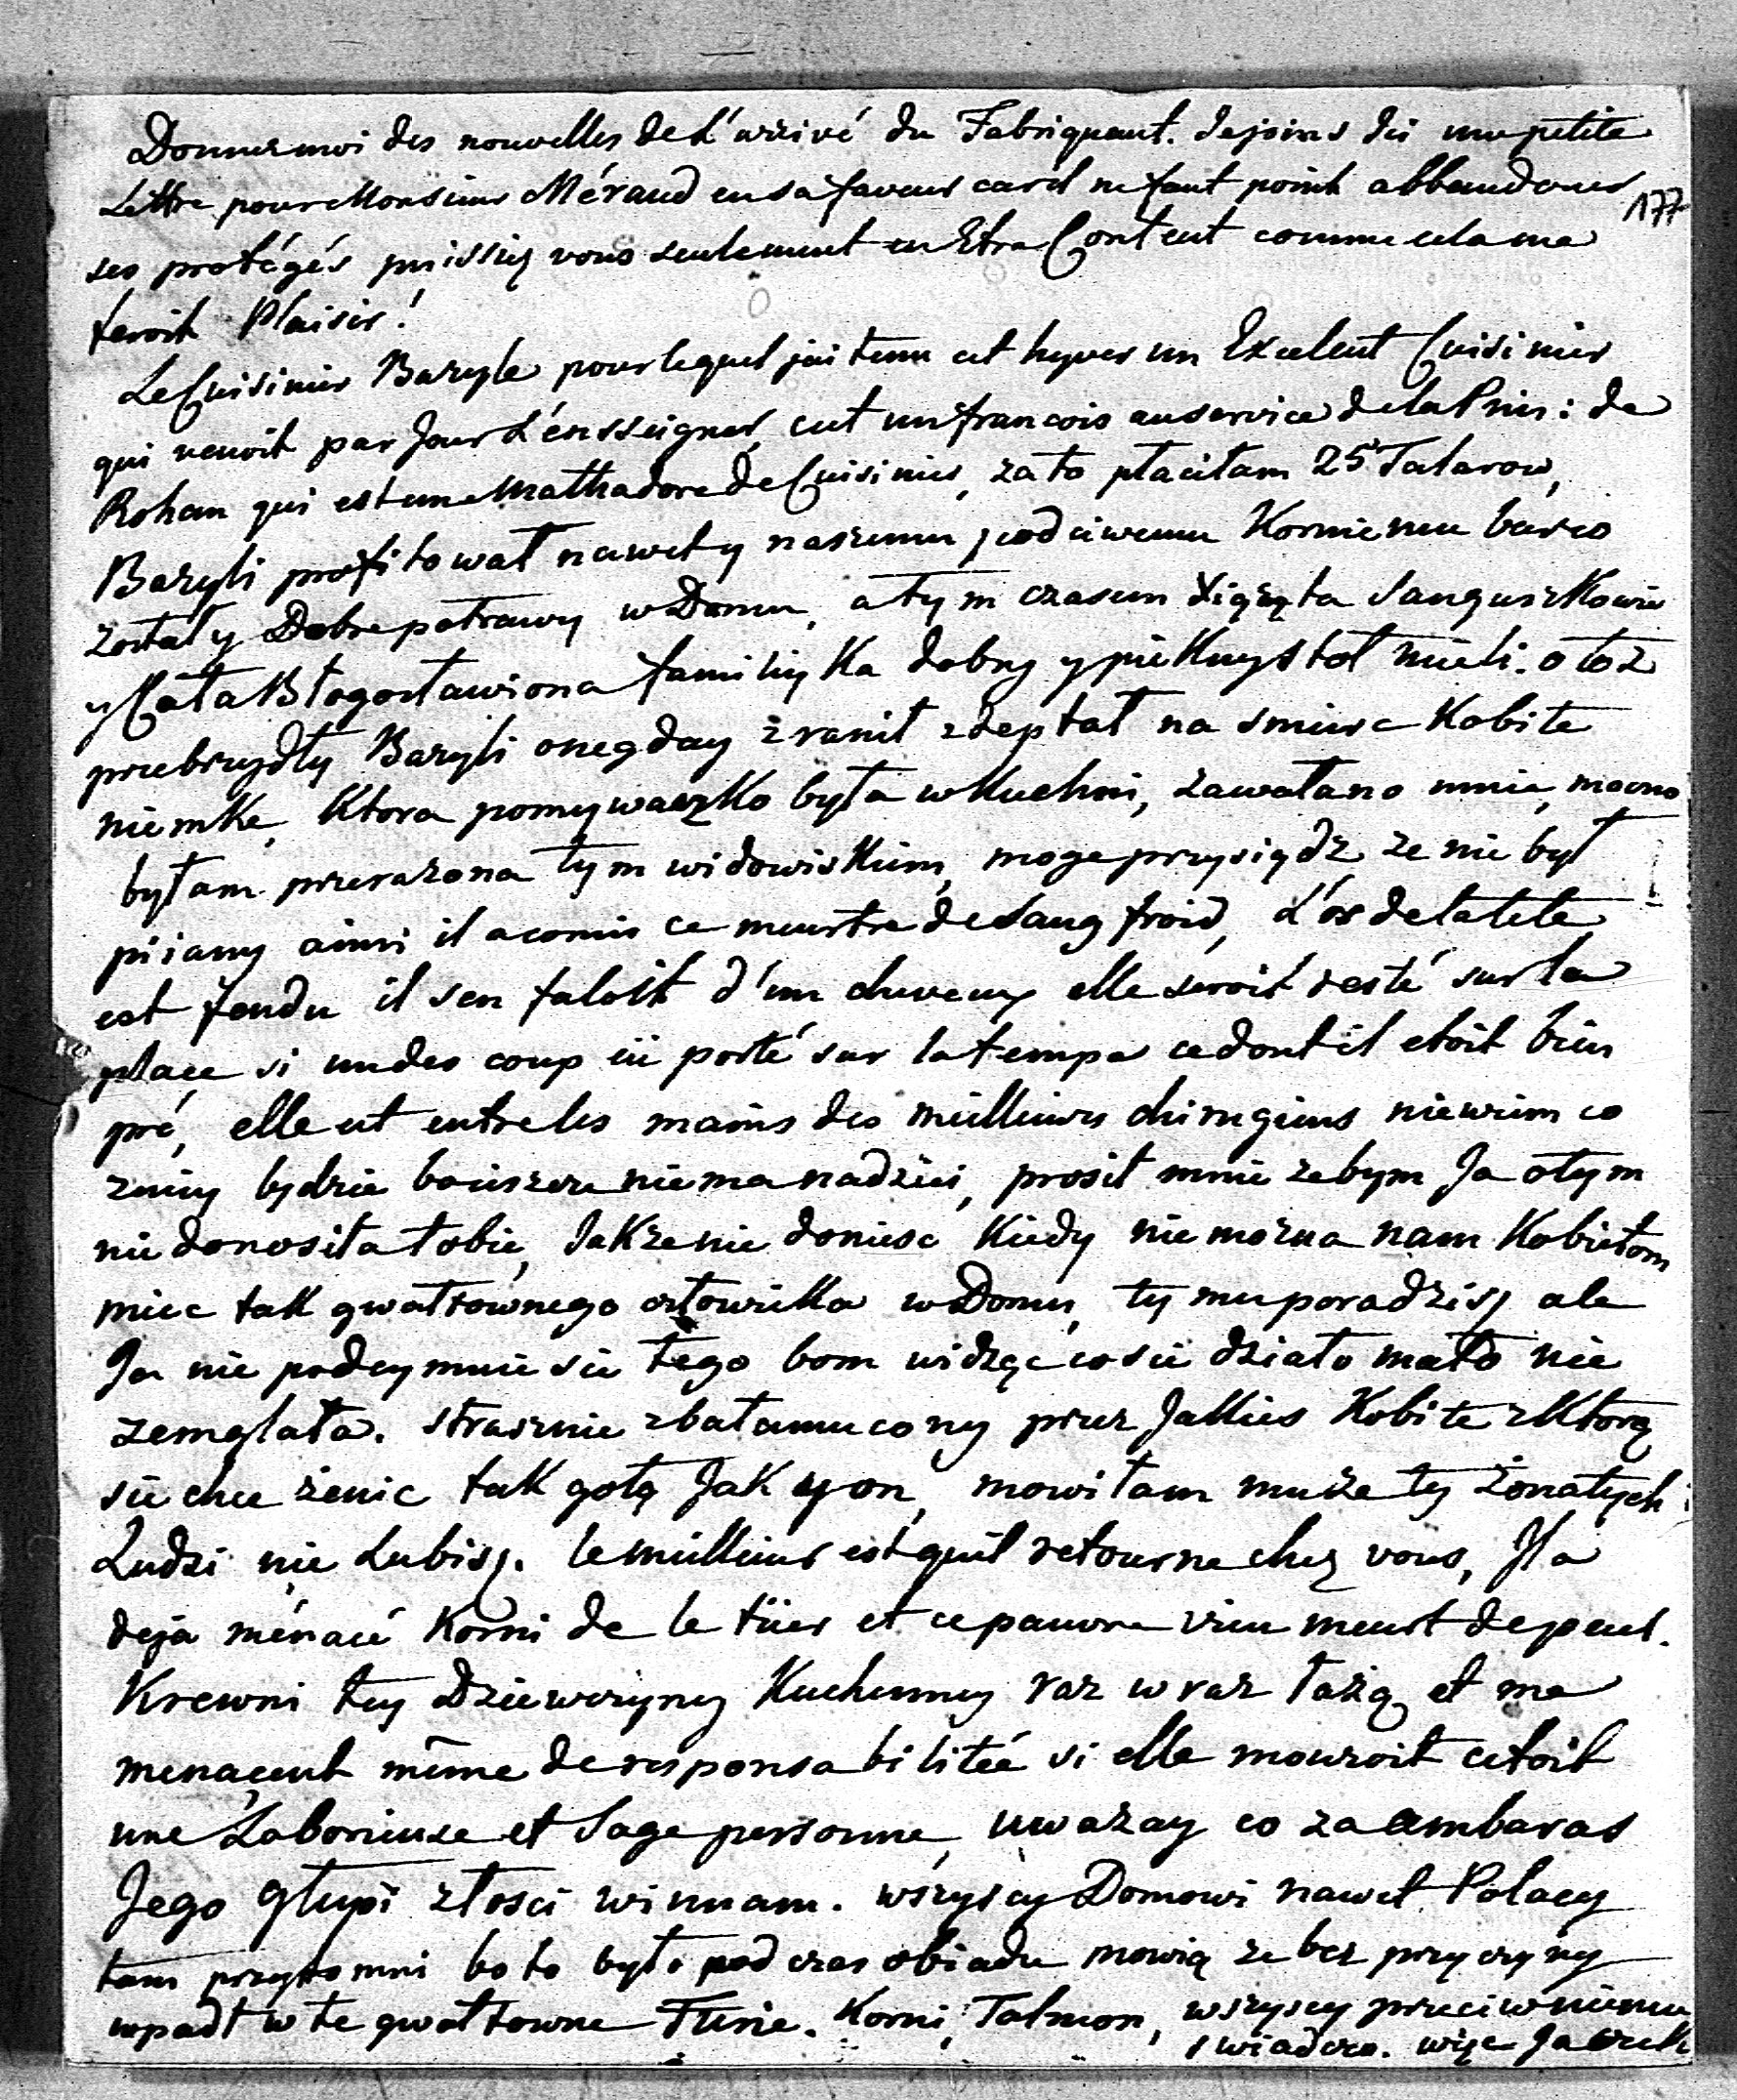 Donnez moi des nouvelles de L'arrivé du Fabriquent. Jejoins Ici une petite
Lettre pour Monsieur Méraud en sa faveur car il ne faut point abbandoner
177
ses protégés puissiez vous seulement en Etre Content comme cela me
feroit Plaisir!
Le Cuisinier Bazyle pour lequel jai tenu cet hyver un Excelent Cuisinier
qui venoit par Jour L'ensseigner, cet un francois au service de la Prin: de
Rohan qui est une Mathadore de Cuisinier, za to płaciłam 25 Talarow,
Bazyli profitował nawet y naszemu podciwemu Korniemu barzo
zostały Dobre potrawy w Domu, a tym czasem Xiążęta Sanguszkowie
y Cała Błogosławiona familijka dobry y piękny stoł mieli. otoż
przebrzydły Bazyli onegday zranił zdeptał na smierc Kobite
niemke, Ktora pomywaczko była w Kuchni, zawołano mnie, mocno
byłam przerazona tym widowiskiem, moge przysiądz ze nie był
pijany ainsi il a comis ce meurtre de Sang froid, L'os de la tete
est fendu il s'en faloit d'un cheveux elle seroit resté sur la
place si un des coup eu porté sur la tempe ce dont il etoit bien
pré, elle est entre les mains des meilleurs chirugiens niewiem co
z nią będzie bo jeszcze niema nadziei, prosił mnie zebym Ja o tym
nie donosiła tobie, Jakze nie doniesc Kiedy nie mozna nam Kobietom
miec tak gwałtownego człowieka w Domu, ty mu poradzisz ale
Ja nie podeymuie sie tego bom widząc co sie działo mało nie
zemglała. strasznie zbałamucony przez Jakies Kobite z Ktorą
sie chce żenic tak gołą Jak y on, mowiłam mu że ty żonatych
Ludzi nie Lubisz. le meilleur est quil retourne chez vous, Il a
deja ménacé Korni de le tüer et ce pauvre vieu meurt de peur.
Krewni tey Dziewczyny Kuchenney raz w raz łażą et me
menaçent même de responsabilitéé si elle mouroit cetoit
une Laborieuse et Sage personne, uwazay co za ambaras
Jego głupi złosci winnam. wszyscy Domowi nawet Polacy
tam przytomni bo to było pod czas obiadu mowią ze bez przyczyny
wpadł w te gwałtowne Furie. Korni, Talmon, wszyscy przeciw niemu
swiadczo. więc Ja